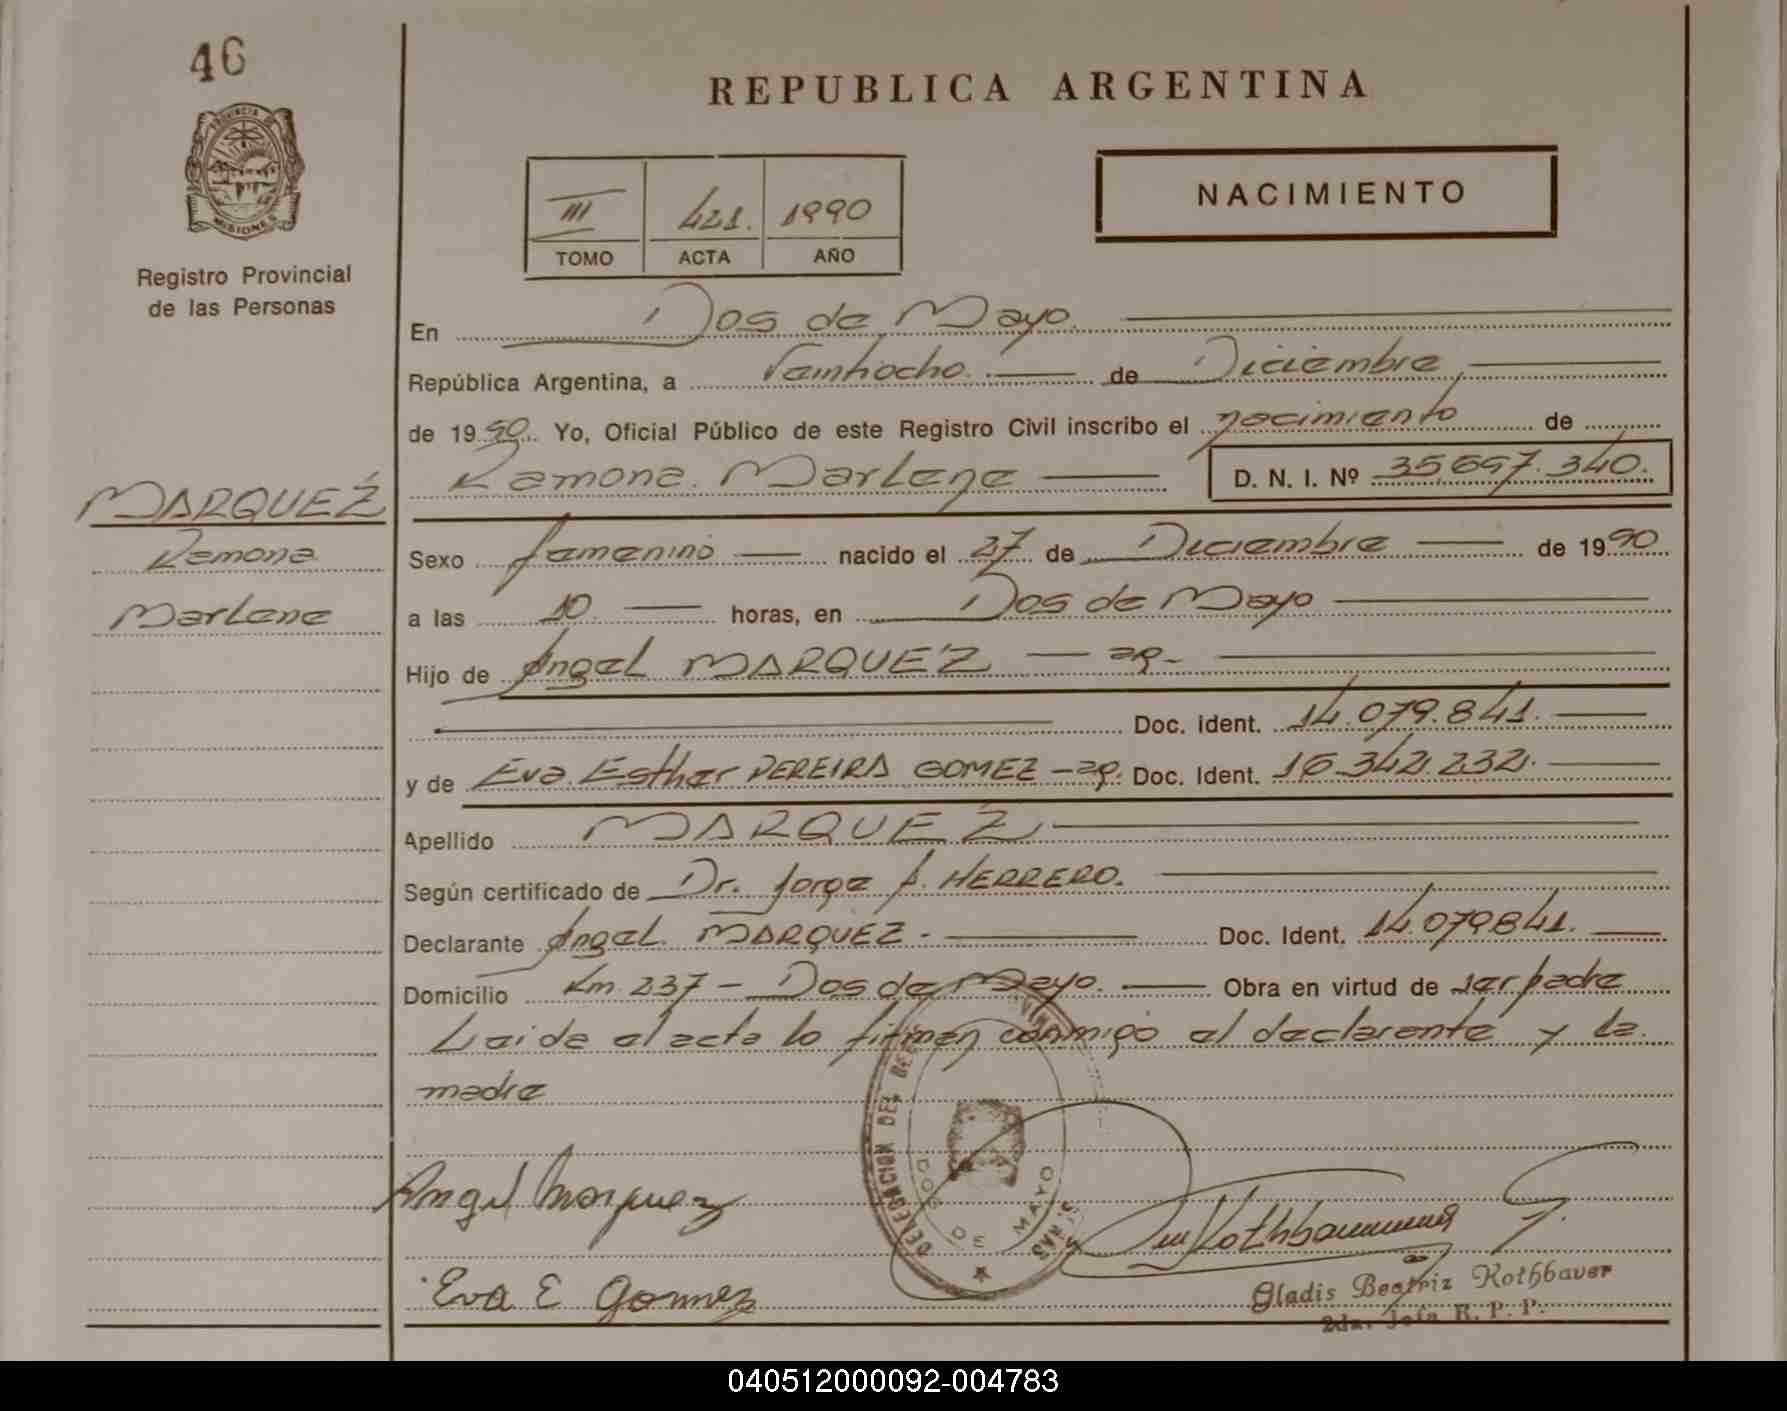 46
REPUBLICA ARGENTINA
PROVINCIA
MISIONES
Registro Provincial
de las Personas
III 421. 1990
TOMO ACTA AÑO
NACIMIENTO
En Dos de Mayo.
República Argentina, a Veintiocho. de Diciembre
de 1990. Yo, Oficial Público de este Registro Civil inscribo el nacimiento de
Ramona. Marlene D. N. I. Nº 35.697.340.
MARQUEZ
Ramona
Marlene
Sexo femenino nacido el 27 de Diciembre de 1990
a las 10 horas, en Dos de Mayo
Hijo de Angel MARQUEZ — ap-
Doc. ident. 14.079.841.
y de Eva Esther PEREIRA GOMEZ - ap. Doc. Ident. 16.342.232.
Apellido MARQUEZ
Según certificado de Dr. Jorge A. HERRERO.
Declarante Angel MARQUEZ - Doc. Ident. 14.079841.
Domicilio Km. 237 - Dos de Mayo. Obra en virtud de ser padre
Leida el acta lo firman conmigo el declarante y la
madre
DELEGACION DEL
DOS DE MAYO
Angel Marquez
Rothbauer G.
Eva E Gomez
Gladis Beatriz Rothbauer
2da. Jefa R. P. P.
040512000092-004783